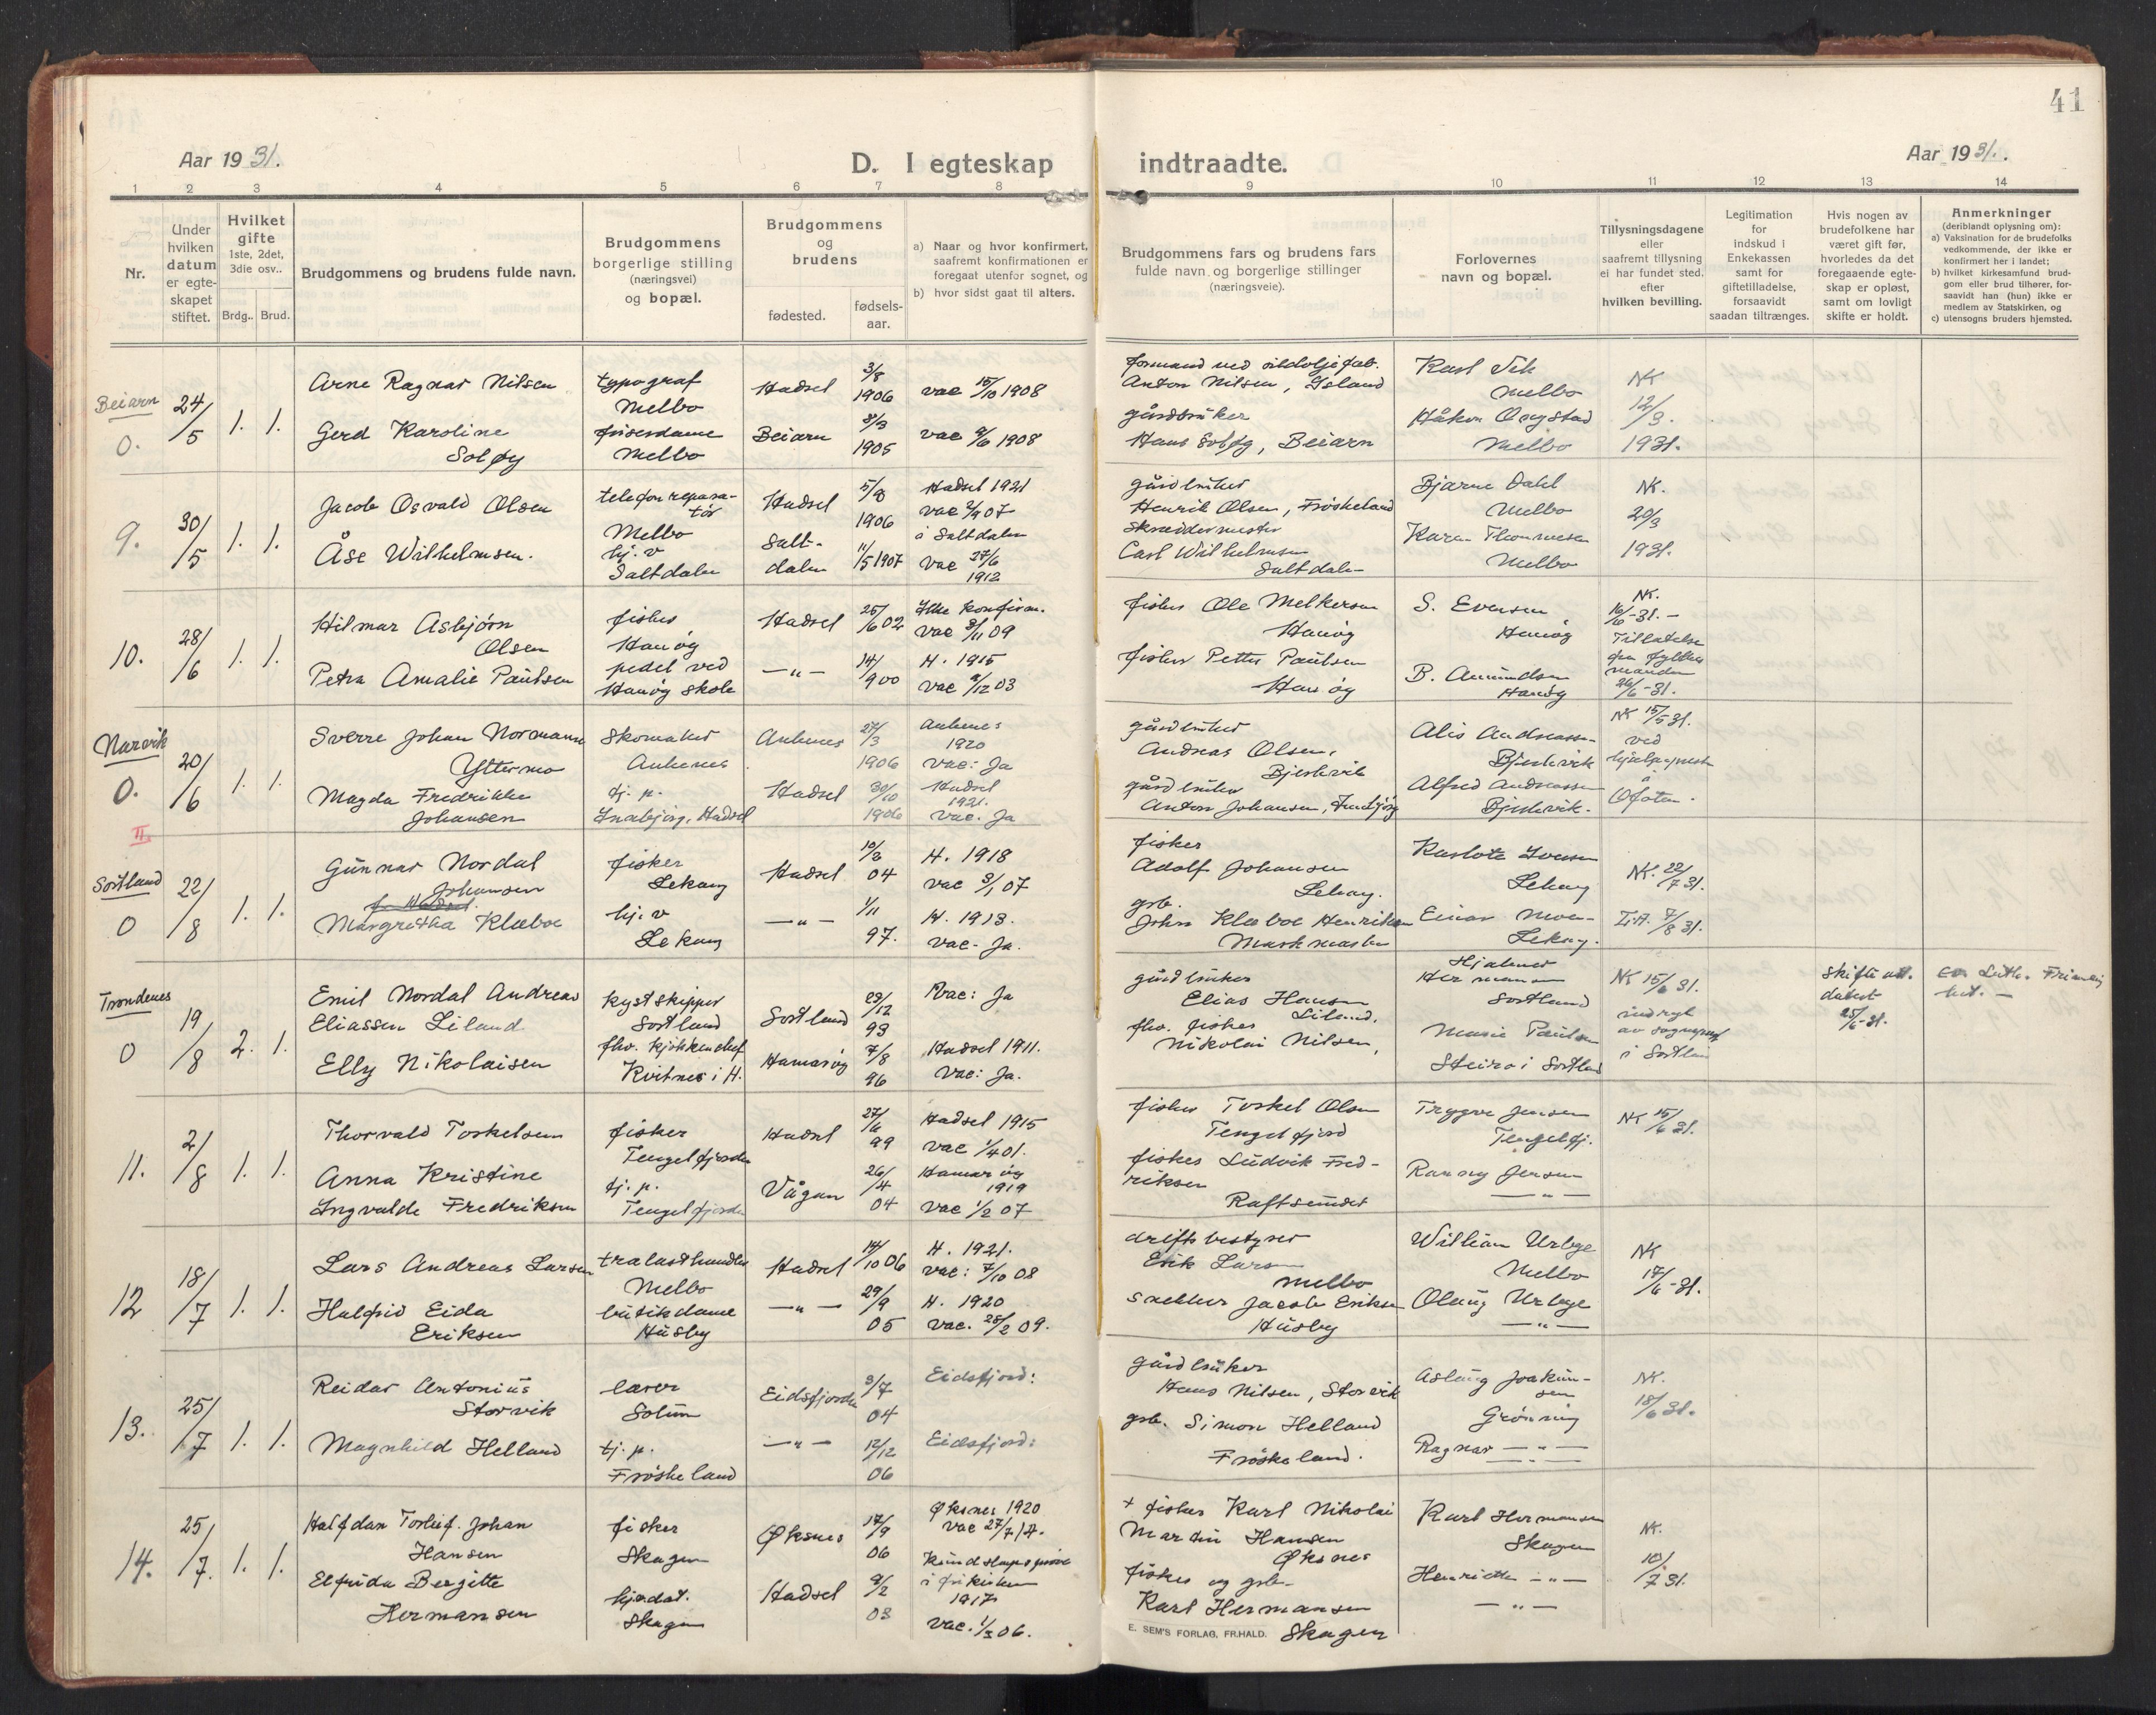 41
Aar 1931.
D. I egteskap indtraadte.
Aar 1931.
1 2 3 4 5 6 7 8 9 10 11 12 13 14
Nr.
Under hvilken datum er egte-skapet stiftet.
Hvilket gifte 1ste, 2det, 3die osv..
Brdg.. Brud.
Brudgommens og brudens fulde navn.
Brudgommens borgerlige stilling (næringsvei) og bopæl.
Brudgommens og brudens
fødested.
fødsels-aar.
a) Naar og hvor konfirmert, saafremt konfirmationen er foregaat utenfor sognet, og
b) hvor sidst gaat til alters.
Brudgommens fars og brudens fars fulde navn og borgerlige stillinger (næringsveie).
Forlovernes navn og bopæl.
Tillysningsdagene eller saafremt tillysning ei har fundet sted. efter hvilken bevilling.
Legitimation for indskud i Enkekassen samt for giftetilladelse, forsaavidt saadan tiltrænges.
Hvis nogen av brudefolkene har været gift før, hvorledes da det foregaaende egte-skap er opløst, samt om lovligt skifte er holdt.
Anmerkninger (deriblandt oplysning om):
a) Vaksination for de brudefolks vedkommende, der ikke er konfirmert her i landet;
b) hvilket kirkesamfund brud-gom eller brud tilhører, for-saavidt han (hun) ikke er medlem av Statskirken, og
c) utensogns bruders hjemsted.
Beiarn
0.
24/5
1. 1.
Arne Ragnar Nilsen
Gerd Karoline
Soløy
typograf
Melbo
frisersdame
Melbo
Hadsel
Beiarn
3/8
1906
8/3
1905
vac 15/10 1908
vac 9/6 1908
formand ved sildoljefab.
Anton Nilsen, Island
gårdbruker
Hans Soløy, Beiarn
Karl Vik
Melbo
Håkon Ongstad
Melbo
NK
12/3.
1931.
9.
30/5
1. 1.
Jacob Osvald Olsen
Åse Wilhelmsen.
telefonrepara-
tør
Melbo
hj. v
Saltdalen
Hadsel
Salt-
dalen
5/8
1906
11/5 1907
Hadsel 1921
vac 2/9 07
i Saltdalen
vac 27/6
1912
gårdbruker
Henrik Olsen, Frøskeland
Skreddermester
Carl Wilhelmsen
Saltdalen
Bjarne Dahl
Melbo
Karen Thommesen
Melbo
NK.
20/3
1931.
10.
28/6
1. 1.
Hilmar Asbjørn
Olsen
Petra Amalie Paulsen
fisker
Hanøy
pedel ved
Hanøy skole
Hadsel
—"—
25/6 02
14/9 00
Ikke konfirm.
vac 3/11 09
H. 1915
vac 9/12 03
fisker Ole Melkersen
Hanøy
fisker Petter Paulsen
Hanøy
S. Evensen
Hanøy
B. Amundsen
Hanøy
NK.
16/6-31.-
Tillatelse
fra fylkes
manden
26/6-31.
Narvik
0.
20/6
1. 1.
Sverre Johan Normann
Yttermo
Magda Fredrikke
Johansen
Skomaker
Ankenes
tj. p.
Innbjörg, Hadsel
Ankenes
Hadsel
27/3
1906
30/10
1906
Ankenes
1920
vac: Ja
Hadsel
1921.
Vac. Ja
gårdbruker
Andreas Olsen,
Bjerkvik
gårdbruker
Anton Johansen, Innbjörg
Alis Andreassen
Bjerkvik
Alfred Andreassen
Bjerkvik.
NK 15/5 31.
ved
hjelpeprest
i
Ofoten.
II.
Sortland
0
22/8
1. 1.
Gunnar Nordal
Johansen
Margretha Klæboe
fisker
Lekang
hj. v
Lekang
Hadsel
—"—
10/3
04
1/11
97.
H. 1918
vac 3/1 07
H. 1913.
vac- Ja.
fisker
Adolf Johansen
Lekang.
grb.
John Klæboe Henriksen
Markmarken
Karlote Iversen
Lekang
Einar Moen
Lekang.
NK. 22/7 31.
7/8 31.
Trondenes
0
19/8
2. 1.
Emil Nordal Andreas
Eliassen Liland
Elly Nikolaisen
kystskipper
Sortland
fhv. kjøkkenchef
Kvitnes i H.
Sortland
Hamarøy
29/12
93
7/8
96
Vac: Ja
Hadsel 1911.
Vac: Ja.
gårdbruker
Elias Hansen
Liland.
fhv. fisker
Nikolai Nilsen,
Hjalmar
Hermansen
Sortland
Marie Paulsen
Steiro i Sortland
NK 15/6 31.
av sogneprest
i Sortland
Skifte att.
datert
25/6-31.
11.
2/8
1. 1.
Thorvald Torkelsen
Anna Kristine
Ingvalde Fredriksen
fisker
Tengelfjorden
tj. p.
Tengelfjorden
Hadsel
Vågan
27/6
99
26/4
04
Hadsel 1915
vac 1/4 01.
Hamarøy
1919
vac 1/2 07
fisker Torkel Olsen
Tengelfjord
fisker Ludvik Fred-
riksen
Raftsundet
Trygve Jensen
Tengelfj.
Ranny Jensen
—"—
NK 15/6 31.
12
18/7
1. 1.
Lars Andreas Larsen
Halfrid Eida
Eriksen
tralasthandler
Melbo
butikdame
Husby
Hadsel
—"—
14/10 06
29/9
05
H. 1921.
vac: 7/10 08
H. 1920
vac. 28/2 09.
driftsbestyrer
Erik Larsen
Melbo
Snekker Jacob Eriksen
Husby
William Urbye
Melbo
Olaug Urbye
—"—
NK
17/6-31.
13.
25/7
1. 1.
Reidar Antonius
Storvik
Magnhild Helland
lærer
Solum
tj. p.
Frøskeland
Eidsfjorden
—"—
3/7
04
12/12
06
Eidsfjord:
Eidsfjord:
gårdbruker
Hans Nilsen, Storvik
grb. Simon Helland
Frøskeland.
Aslaug Joakim-
sen
Grönning
Ragnar —"—
NK.
18/6 31.
14.
25/7.
1. 1.
Halfdan Torleif. Johan
Hansen
Elfrida Bergitte
Hermansen
fisker
Skagen
hjördat.
Skagen
Øksnes
Hadsel
17/9
06
9/2
03
Øksnes 1920
vac 27/7 17.
Kundskapsprøve
i frikirken
1917
vac. 1/3 06.
+ fisker Karl Nikolai
Martin Hansen
Øksnes
fisker og grb.
Karl Hermansen
Skagen
Karl Hermansen
Skagen
Henriette —"—
—"—
NK.
10/7 31.
E. SEM'S FORLAG, FR.HALD.